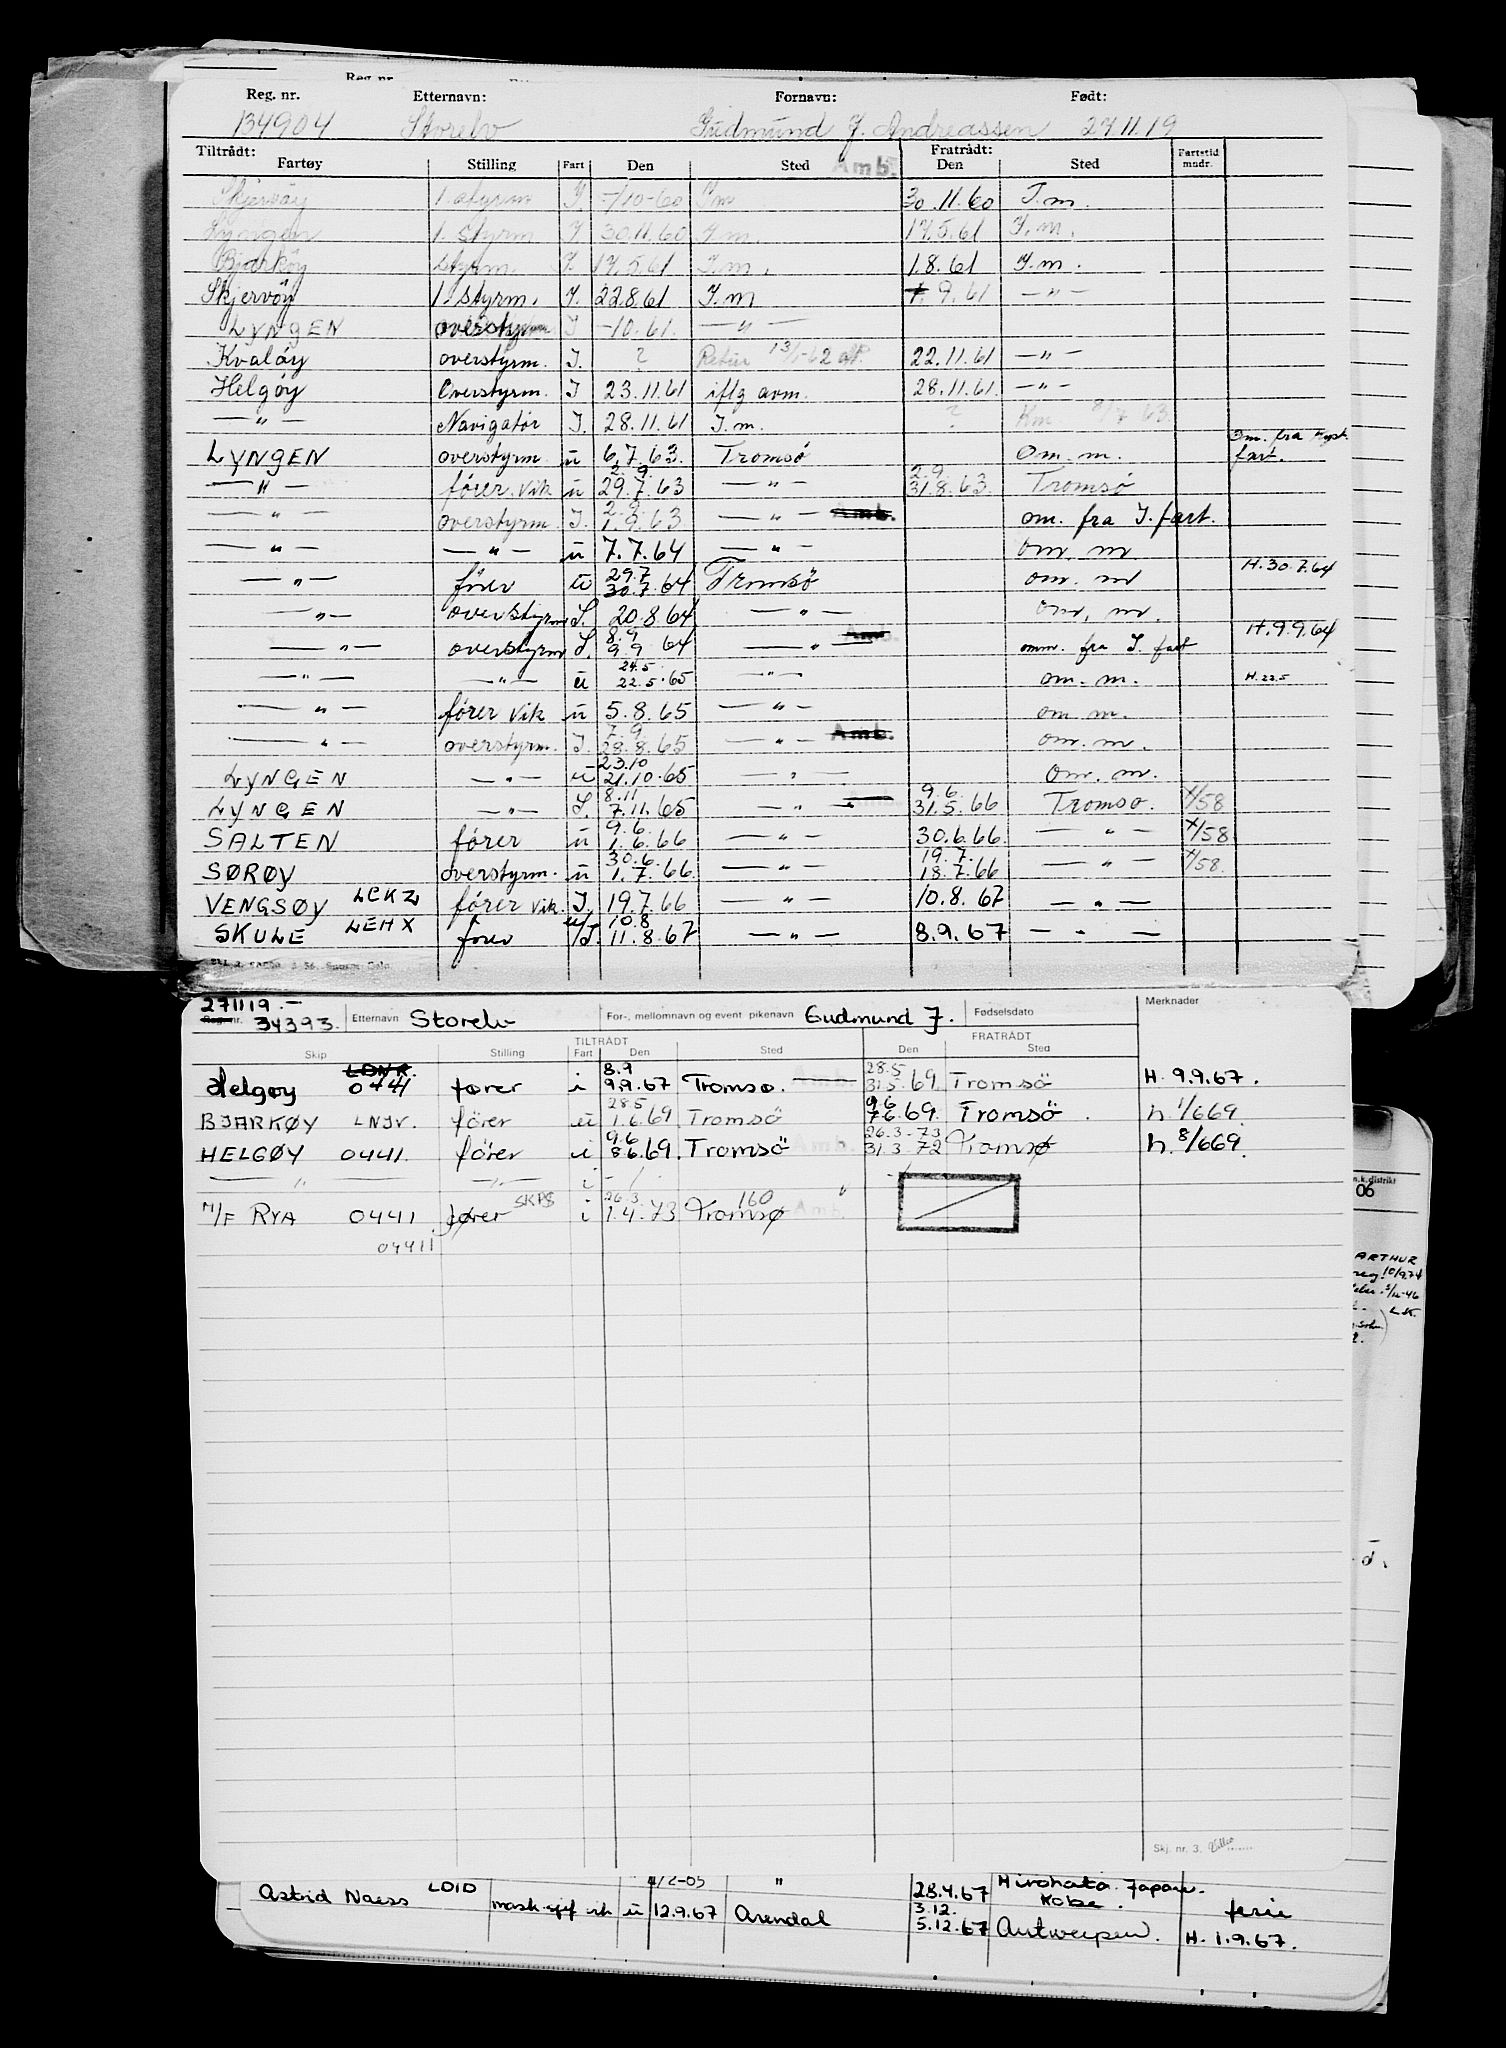 Reg. nr. Etternavn: Fornavn: Født:
134904 Storelv Gudmund J. Andreassen 27.11.19
Tiltrådt: Fratrådt: Fartstid
Fartøy Stilling Fart Den Sted Amb. Den Sted mndr.
Skjervöy 1. styrm I -/10-60 I m 30.11.60 I.m.
Lyngen 1. styrm I 30.11.60 I.m. 17.5.61 I.m.
Bjarköy styrm. I. 17.5.61 I.m. 1.8.61 I.m.
Skjervöy 1. styrm. I. 22.8.61 I.m 9.61 — " —
LYNGEN overstyrm I -10.61. — " —
Kvalöy overstyrm. I. ? Retur 13/1-62 22.11.61 — " —
Helgöy Overstyrm. I 23.11.61 iflg avm. 28.11.61. — " —
— " — Navigatör I. 28.11.61 I.m. ? Km 8/7 63
LYNGEN overstyrm u 6.7.63. Tromsö Om. m. Om. fra Kyst fart.
— " — förer. vik u 2.9. 29.7.63 — " — 2.9. 31.8.63. Tromsö
— " — overstyrm. I. 2.9. 1.9.63 — " — Amb. om. fra I. fart.
— " — — " — u 7.7.64 — " — om. m
— " — förer u 29.7 30.7.64 Tromsö om. m H. 30.7.64
— " — overstyrm I. 20.8.64 — " — om. m.
— " — overstyrm I. 8.9 9.9 64 — " — Amb. omm. fra I. fart H. 9.9.64
— " — — " — u 24.5. 22.5.65 — " — om. m. H. 22.5
— " — förer vik u 5.8.65 — " — om m.
— " — overstyrm. I. 7.9. 28.8.65 — " — Amb. om. m.
LYNGEN — " — u 23.10 21.10.65 — " — Om. m.
LYNGEN — " — I. 8.11 7.11.65 — " — 9.6. 31.5.66 Tromsö. x/58
SALTEN förer u 9.6. 1.6.66 — " — 30.6.66. — " — x/58
SØRØY overstyrm. u 30.6. 1.7.66. — " — 19.7. 18.7.66 — " — x/58.
VENGSØY LCKZ förer vik. I. 19.7.66 — " — 10.8.67 — " —
SKULE LEHX förer u/I. 10.8 11.8.67 — " — 8.9.67 — " —
271119.-
Reg. nr. 34393. Etternavn Storelv For-, mellomnavn og event. pikenavn Gudmund J. Fødselsdato Merknader
TILTRÅDT FRATRÅDT
Skip Stilling Fart Den Sted Den Sted
Helgøy LDNR. 0441 fører i 8.9 9.9.67 Tromsø. Amb. 28.5 31.5.69 Tromsö H. 9.9.67.
BJARKØY LNJV. förer u 28.5 1.6.69 Tromsö 9.6 7.6.69. Tromsö. h. 1/669.
HELGØY 0441. förer i 9.6 8.6.69. Tromsö Amb. 26.3-73 31.3.72 Tromsø h. 8/669.
— " — — " — i - / " /
M/F RYA 0441 fører SKPS i 26.3. 1.4.73 Tromsø 160 Amb.
04411
06
ARTHUR
Skj. nr. 3.
"
Astrid Naess LDID 28.4.67 Hirohata Japan.
mask u 12.9.67 Arendal 3.12. Kobe. ferie
5.12.67 Antwerpen. H. 1.9.67.